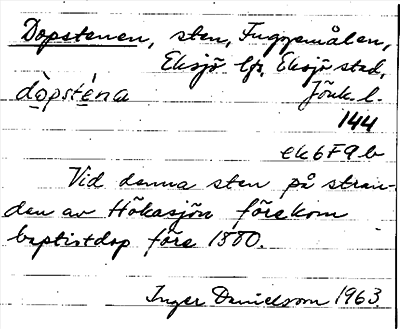 Dopstenen, sten, Fuggemålen,
Eksjö lfs, Eksjö stad,
dòpsténa Jönk l.
144
ek 6F9b
Vid denna sten på stran-
den av Hökasjön förekom
baptistdop före 1880.
Inger Danielsson 1963